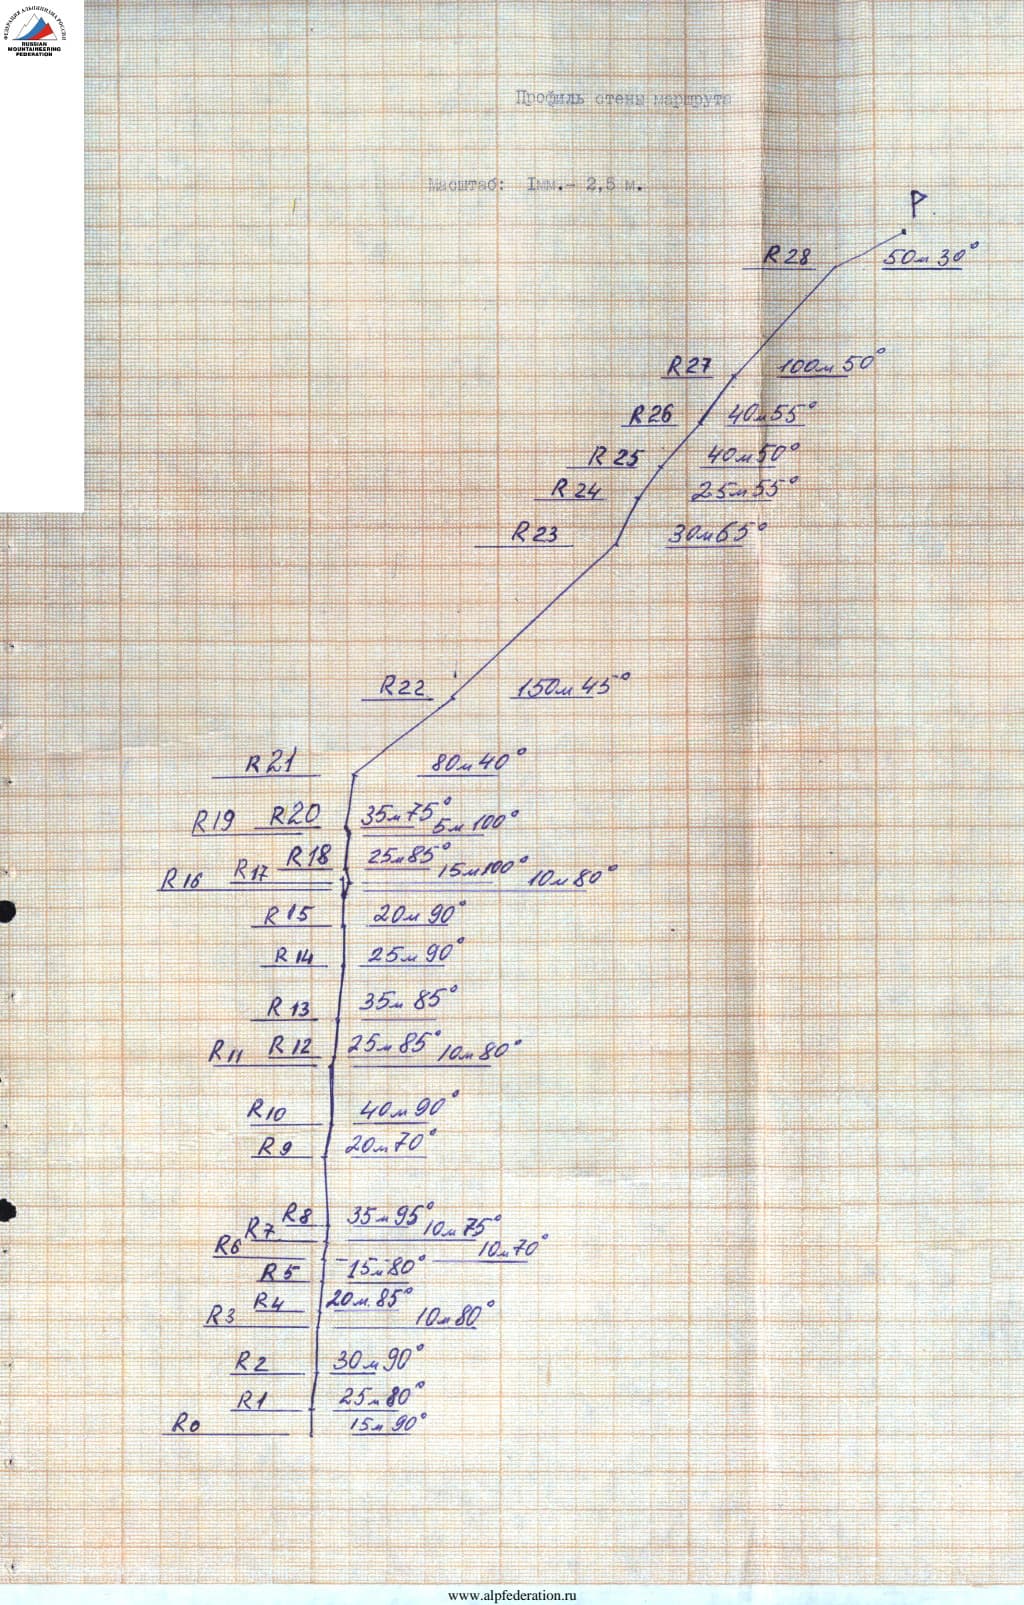 ФЕДЕРАЦИЯ АЛЬПИНИЗМА РОССИИ
RUSSIAN
MOUNTAINEERING
FEDERATION
Профиль стены маршрута
Масштаб: 1мм.- 2,5 м.
P
R28 50м 30°
R27 100м 50°
R26 40м 55°
R25 40м 50°
R24 25м 55°
R23 30м 65°
R22 150м 45°
R21 80м 40°
R19 R20 35м 75° 5м 100°
R16 R17 R18 25м 85° 15м 100° 10м 80°
R15 20м 90°
R14 25м 90°
R13 35м 85°
R11 R12 25м 85° 10м 80°
R10 40м 90°
R9 20м 70°
R6 R7 R8 35м 95° 10м 75° 10м 70°
R5 15м 80°
R3 R4 20м. 85° 10м 80°
R2 30м 90°
R1 25м 80°
R0 15м 90°
www.alpfederation.ru